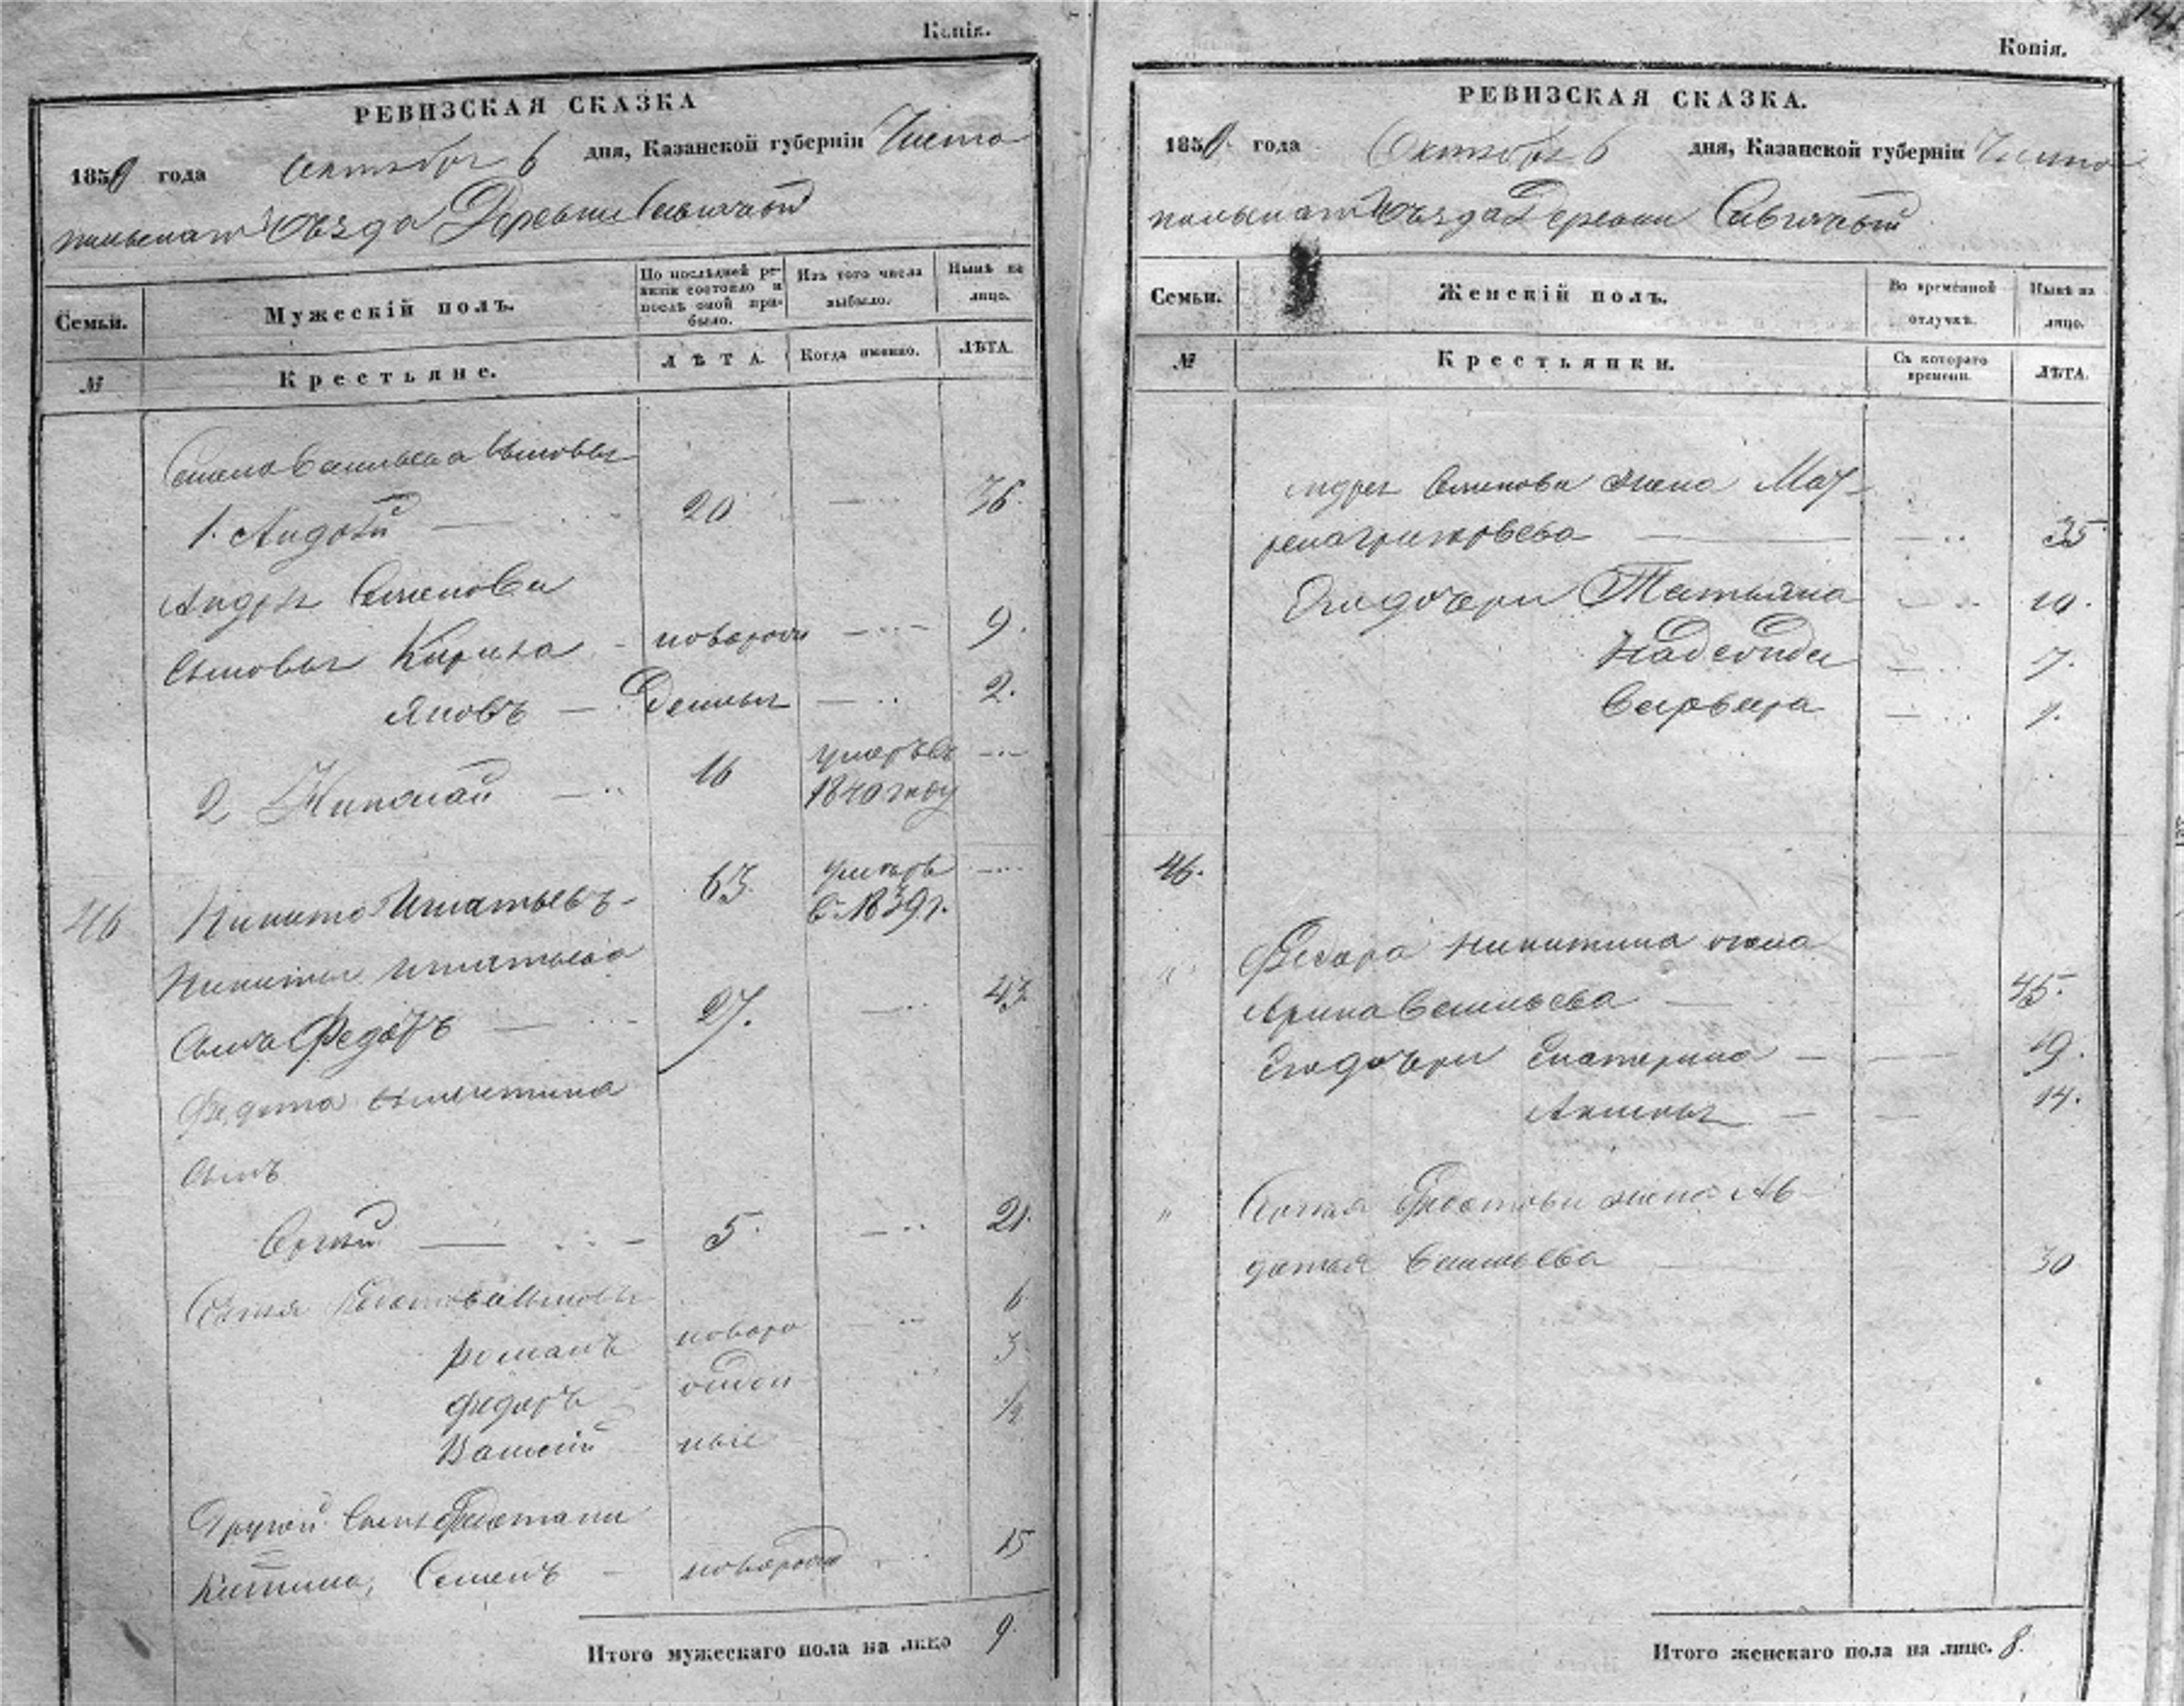 Копія.
РЕВИЗСКАЯ СКАЗКА
1850 года Октября 6 дня, Казанской губерніи Чисто
польскаго Уѣзда Деревни
Семьи.
Мужескій полъ.
По послѣдней ре-
визіи состояло и
послѣ оной при-
было.
Изъ того числа
выбыло.
Нынѣ на
лицо.
№
Крестьяне.
ЛѢТА.
Когда именно.
ЛѢТА.
Семена Васильева сыновья
1. Андрей 20 36.
Андрея Семенова
сыновья Кирила новорож 9.
Яковъ денныя 2.
2 Николай 16 умеръ въ
1840 году
46 Никита Игнатьевъ 63. умеръ
в 1839 г.
Никиты Игнатьева
сынъ Федотъ 27. 43
Федота Никитина
сынъ
Сергей 5. 21.
Сергея Федотова сыновья
Романъ новоро 6
Федоръ жден 3
Василій ные 1/2
Другой сынъ Федота Ни
китина, Семенъ новорож 15
Итого мужескаго пола на лицо 9.
Копія.
РЕВИЗСКАЯ СКАЗКА.
1850 года Октября 6 дня, Казанской губерніи Чисто
польскаго Уѣзда Деревни
Семьи.
Женскій полъ.
Во временной
отлучкѣ.
Нынѣ на
лицо.
№
Крестьянки.
Съ котораго
времени.
ЛѢТА.
Андрея Семенова жена Мат-
рена Григорьева 35
Его дочери Татьяна 10.
Надежда 7.
Варвара 1.
46.
" Федота Никитина жена
Арина Васильева 45.
Его дочери Екатерина 19.
14.
" Сергея Федотова жена Ав-
дотья Васильева 30
Итого женскаго пола на лице. 8.